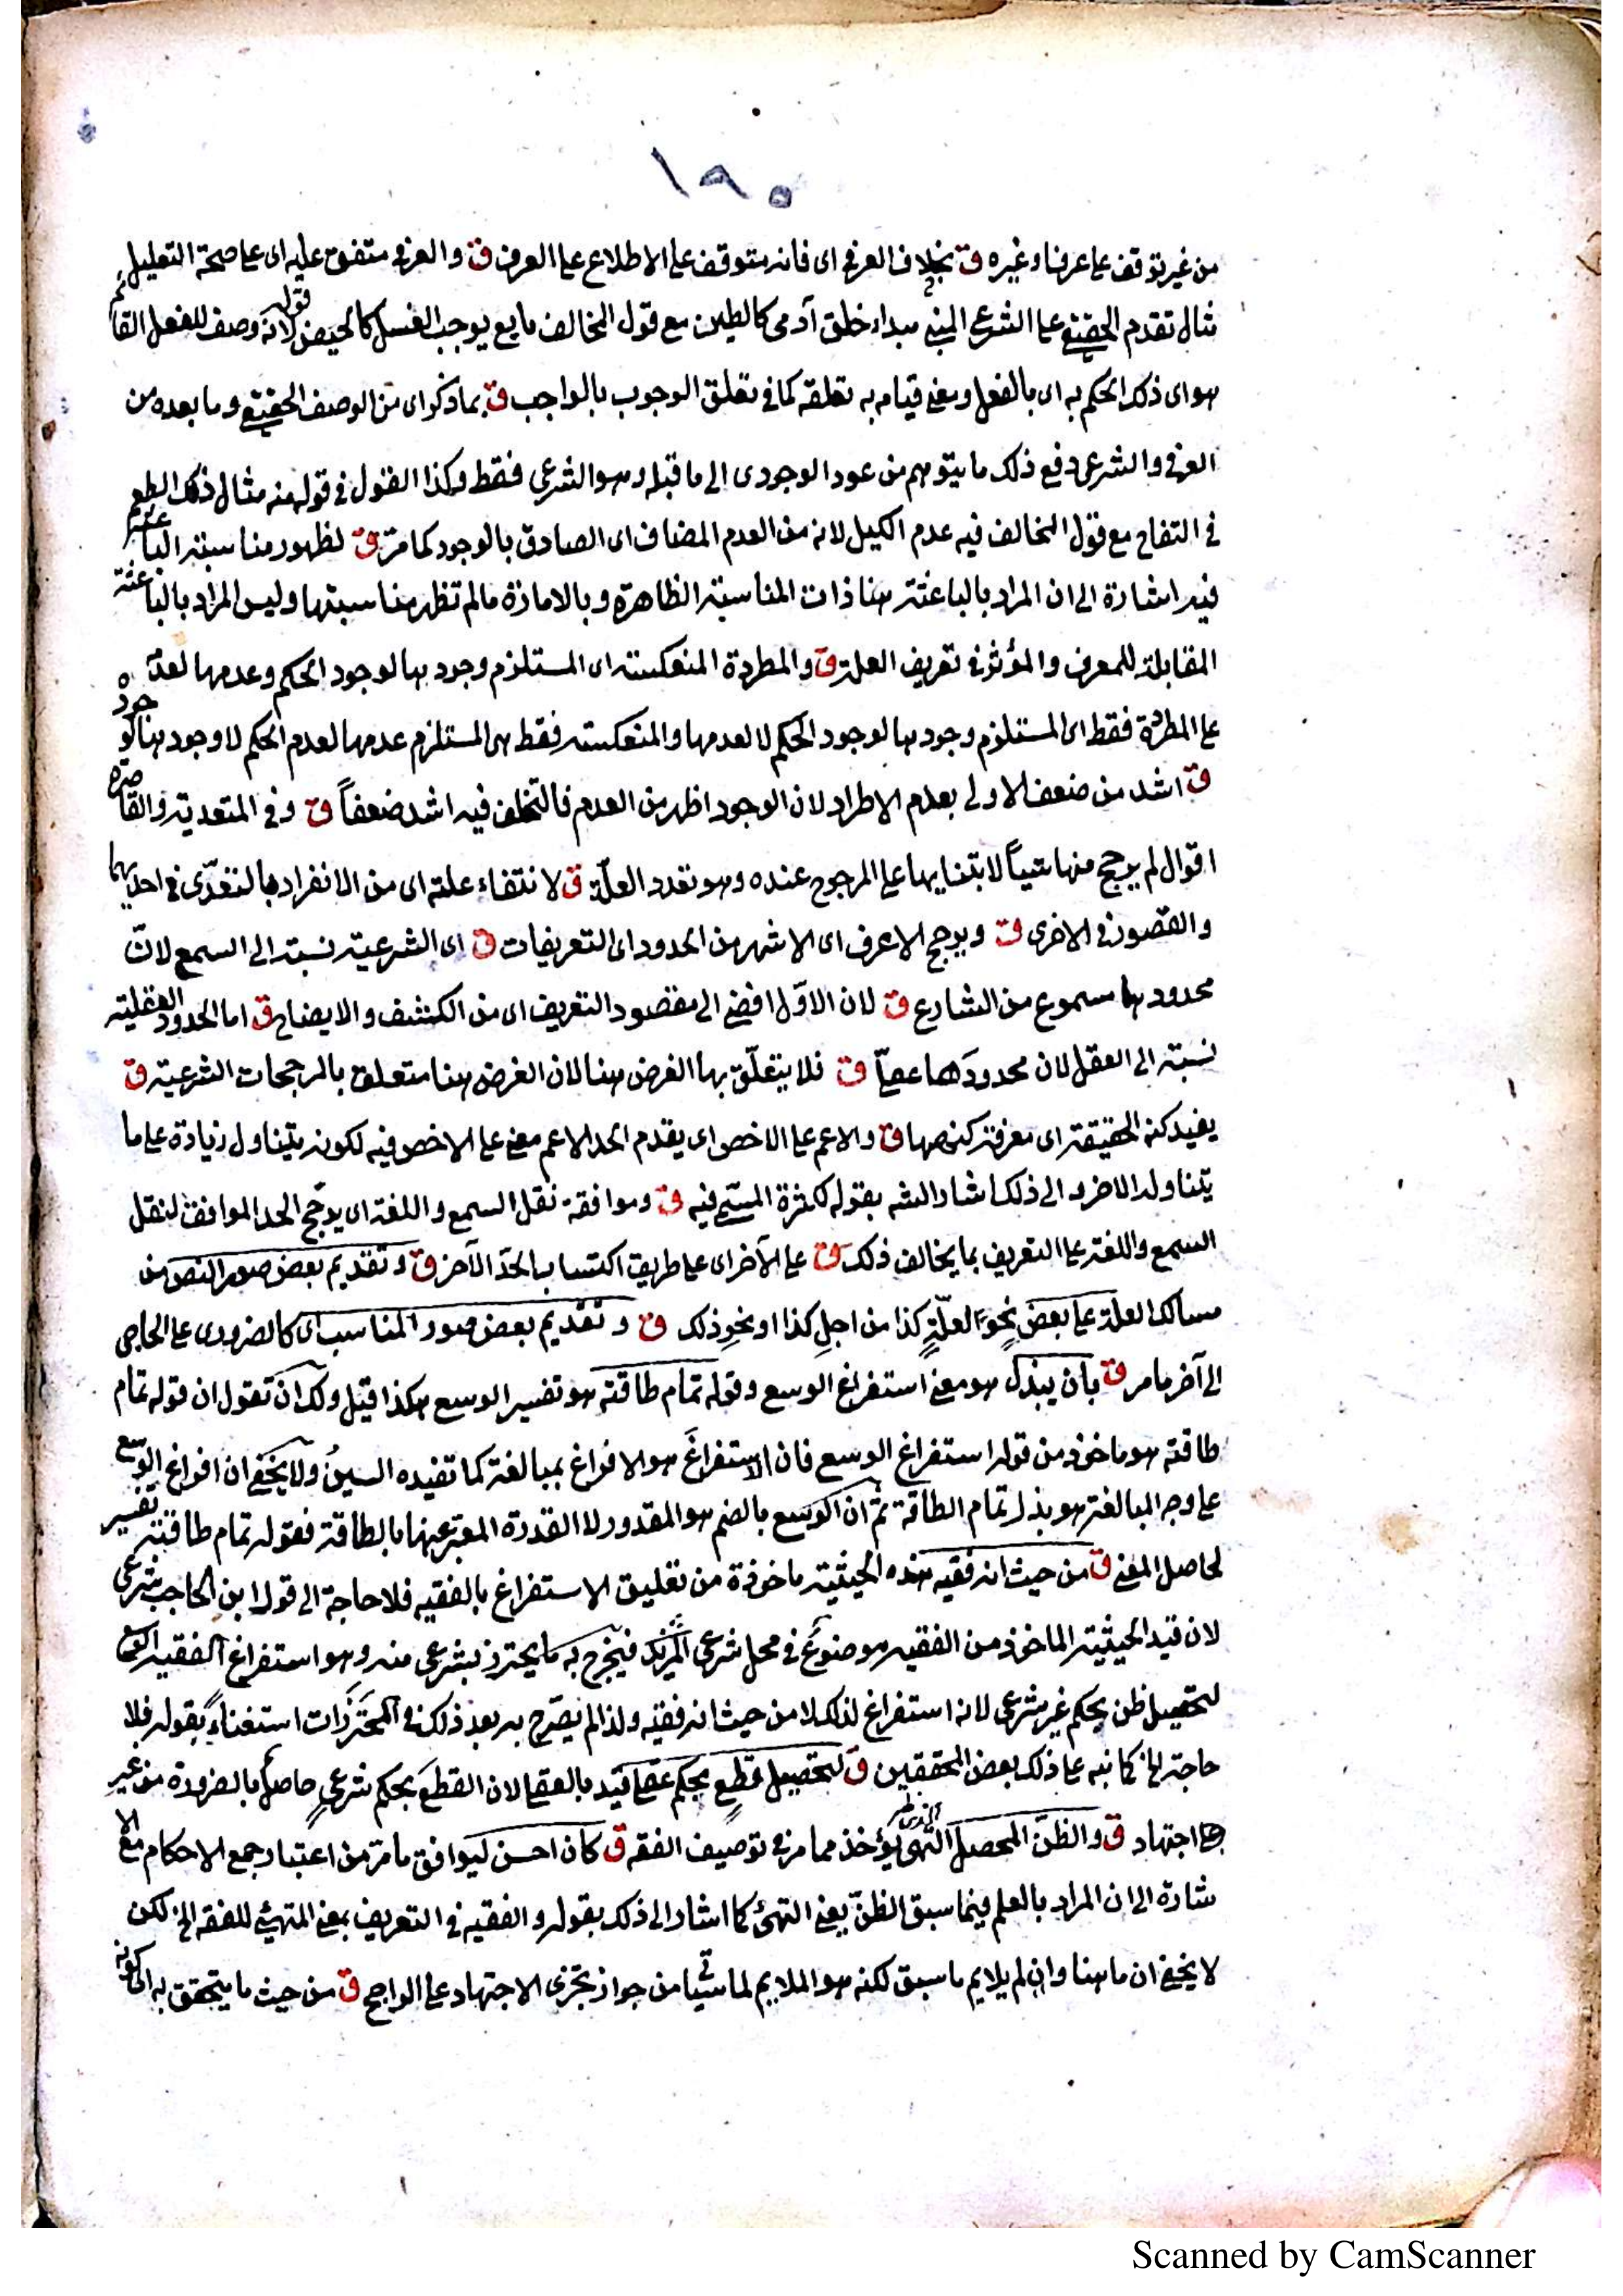 ١٩٠
من غير توقف على عرف او غيره ق بخلاف العرفى اى فانه متوقف على الاطلاع على العرف ق والعرفى متفق عليه اى على صحة التعليل به
مثال تقدم الحقيقى على الشرعى المنى مبداء خلق آدمى كالطين مع قول المخالف مايع يوجب الغسل كالحيض قوله لانه وصف للفعل القائم
هو اى ذلك الحكم به اى بالفعل ومعنى قيامه به تعلقه كما فى تعلق الوجوب بالواجب ق بما ذكر اى من الوصف الحقيقى وما بعده من
العرفى والشرعى دفع ذلك ما يتوهم من عود الوجودى الى ما قبله وهو الشرعى فقط وكذا القول فى قوله منه مثال ذلك الطعم
فى التفاح مع قول المخالف فيه عدم الكيل لانه من العدم المضاف اى الصادق بالوجود كما مر ق لظهور مناسبة الباعثة
فيه اشارة الى ان المراد بالباعثة هنا ذات المناسبة الظاهرة وبالامارة مالم تظهر مناسبتها وليس المراد بالباعثة
المقابلة للمعرف والمؤثر فى تعريف العلة ق والمطردة المنعكسة اى المستلزم وجودها لوجود الحكم وعدمها لعدمه
على المطردة فقط اى المستلزم وجودها لوجود الحكم لا لعدمها والمنعكسة فقط هى المستلزم عدمها لعدم الحكم لا وجودها لوجوده
ق اشد من ضعف الاولى بعدم الاطراد لان الوجود اظهر من العدم فالتخلف فيه اشد ضعفاً ق وفى المتعدية والقاصرة
اقوال لم يرجح منها شيئاً لابتنايها على المرجوح عنده وهو تعدد العلّة ق لانتفاء علته اى من الانفراد بالتعدّى فى احديهما
والقصور فى الاخرى ق ويرجح الاعرف اى الاشهر من الحدود اى التعريفات ق اى الشرعية نسبة الى السمع لانّ
محدودها مسموع من الشارع ق لان الاوّل افضى الى مقصود التعريف اى من الكشف والايضاح ق اما الحدود العقلية
نسبة الى العقل لان محدودها عقلىّ ق فلا يتعلّق بها الغرض هنا لان الغرض هنا متعلق بالمرجحات الشرعية ق
يفيد كنه الحقيقة اى معرفة كنهها ق والاعم على الاخص اى يقدم الحد الاعم معنى على الاخص فيه لكونه يتناول زيادة على ما
يتناوله الاخر والى ذلك اشار الشه بقوله لكثرة المسمى فيه ق وموافقة نقل السمع واللغة اى يرجّح الحد الموافق لنقل
السمع واللغة على التعريف بما يخالف ذلك ق على الآخر اى على طريق اكتساب الحدّ الآخر ق وتقديم بعض صور النص من
مسالك العلة على بعض نحو لعلّةٍ كذا من اجل كذا او نحو ذلك ق وتقديم بعض صور المناسب اى كالضرورى على الحاجى
الى آخر ما مر ق بان يبذل هو معنى استفراغ الوسع وقوله تمام طاقته هو تفسير الوسع هكذا قيل ولك ان تقول ان قوله تمام
طاقته هو ماخوذ من قوله استفراغ الوسع فان الاستفراغ هو الافراغ بمبالغة كما تفيده السينُ ولا يخفى ان افراغ الوسع
على وجه المبالغة هو بذل تمام الطاقة ثم ان الوسع بالضم هو المقدور لا القدرة المعبر عنها بالطاقة فقوله تمام طاقته تفسير
لحاصل المعنى ق من حيث انه فقيه هذه الحيثية ماخوذة من تعليق الاستفراغ بالفقيه فلا حاجة الى قول ابن الحاجب شرعى
لان قيد الحيثية الماخوذ من الفقيه موضوع فى محل شرعى فيخرج به ما يحترز بشرعى منه وهو استفراغ الفقيه الوسع
لتحصيل ظن بحكم غير شرعى لانه استفراغ لذلك لا من حيث انه فقيه ولذا لم يصّرح به بعد ذلك فى المحترزات استغناءً بقوله فلا
حاجة الخ كما نبه على ذلك بعض المحققين ق لتحصيل قطع بحكم عقلى قيّد بالعقلى لان القطع بحكم شرعىٍ حاصل بالضرورة من غير
اجتهاد ق والظنّ المحصل الذى يؤخذ مما مر فى توصيف الفقه ق كان احسن ليوافق ما مرّ من اعتبار جمع الاحكام مع الا
شارة الى ان المراد بالعلم فيما سبق الظنّ يعنى التهئ كما اشار الى ذلك بقوله والفقيه فى التعريف بمعنى المتهيئ للفقه الخ لكن
لا يخفى ان ما هنا وان لم يلايم ما سبق لكنه هو الملايم لما سيأتى من جواز تجزى الاجتهاد على الراجح ق من حيث ما يتحقق به اى كونه
Scanned by CamScanner